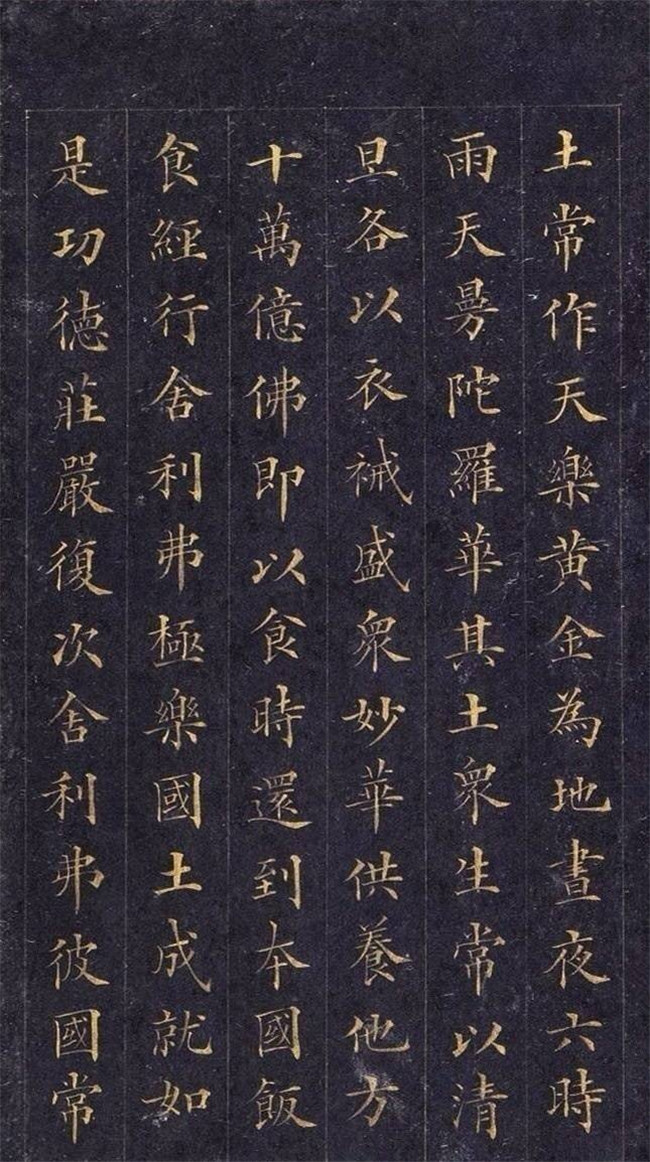 土常作天樂黄金為地晝夜六時
雨天曼陀羅華其土眾生常以清
旦各以衣祴盛眾妙華供養他方
十萬億佛即以食時還到本國飯
食經行舍利弗極樂國土成就如
是功徳莊嚴復次舍利弗彼國常